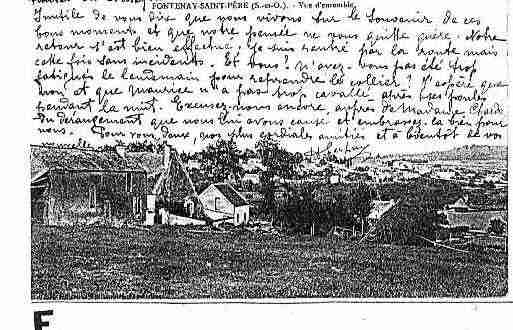 FONTENAY-SAINT-PÈRE (S.-et-O.). - Vue d'ensemble
Inutile de vous dire que nous vivons sur le souvenir de ces
bons moments et que notre pensée ne vous quitte guère. Notre
retour s'est bien effectué. Je suis rentré par la route mais
cette fois sans incidents. Et vous? n'avez-vous pas été trop
fatigués le lendemain pour reprendre le collier? J'espère que
non et que Maurice n'a pas trop cavalé après ses poules
pendant la nuit. Excusez-nous encore auprès de Madame
du dérangement que nous lui avons causé et embrassez la bien pour
nous. Pour vous deux, nos plus cordiales amitiés et à bientôt de vos
nouvelles
F